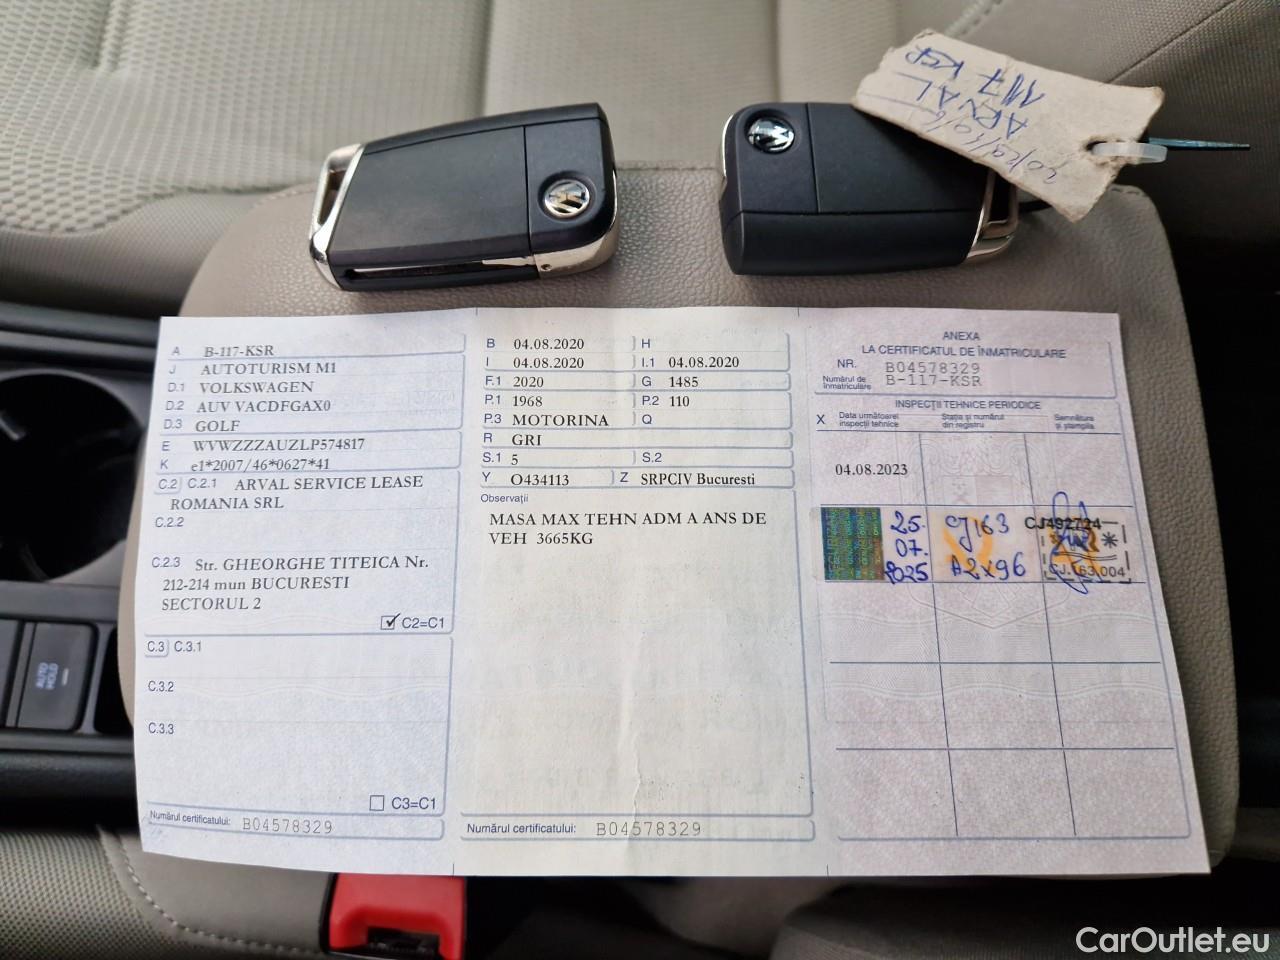 ARVAL
117 KSR
A B-117-KSR
J AUTOTURISM M1
D.1 VOLKSWAGEN
D.2 AUV VACDFGAX0
D.3 GOLF
E WVWZZZAUZLP574817
K e1*2007/46*0627*41
C.2 C.2.1 ARVAL SERVICE LEASE
ROMANIA SRL
C.2.2
C.2.3 Str. GHEORGHE TITEICA Nr.
212-214 mun BUCURESTI
SECTORUL 2
C2=C1
C.3 C.3.1
C.3.2
C.3.3
C3=C1
Numărul certificatului: B04578329
B 04.08.2020 H
I 04.08.2020 I.1 04.08.2020
F.1 2020 G 1485
P.1 1968 P.2 110
P.3 MOTORINA Q
R GRI
S.1 5 S.2
Y O434113 Z SRPCIV Bucuresti
Observații
MASA MAX TEHN ADM A ANS DE
VEH 3665KG
Numărul certificatului: B04578329
ANEXA
LA CERTIFICATUL DE ÎNMATRICULARE
NR. B04578329
Numărul de
înmatriculare B-117-KSR
INSPECȚII TEHNICE PERIODICE
X Data următoarei
inspecții tehnice
Stația și numărul
din registru
Semnătura
și ștampila
04.08.2023
25.
07.
2025
CJ163
A2X96
CJ492724
CJ.163.004
AUTO
HOLD
CarOutlet.eu